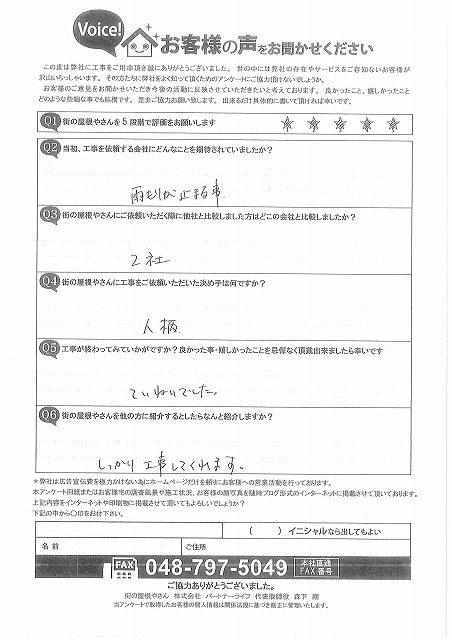 Voice!
お客様の声をお聞かせください
この度は弊社に工事をご用命頂き誠にありがとうございました。世の中には弊社の存在やサービスをご存知ないお客様が
沢山いらっしゃいます。その方たちに弊社をよく知って頂くためのアンケートにご協力頂けないでしょうか。
お客様のご意見をお聞かせいただき今後の活動に反映させていただきたいと考えております。良かったこと、嬉しかったこと
どのような些細な事でも結構です。是非ご協力お願い致します。出来るだけ具体的に書いて頂ければ幸いです。
Q1 街の屋根やさんを5段階で評価をお願いします ☆ ☆ ☆ ☆ ☆
Q2 当初、工事を依頼する会社にどんなことを期待されていましたか?
雨もりが止まる事
Q3 街の屋根やさんにご依頼いただく際に他社と比較しました方はどこの会社と比較しましたか?
2社
Q4 街の屋根やさんに工事をご依頼いただいた決め手は何ですか?
人柄
Q5 工事が終わってみていかがですか?良かった事・嬉しかったことを忌憚なく頂戴出来ましたら幸いです
ていねいでした。
Q6 街の屋根やさんを他の方に紹介するとしたらなんと紹介しますか?
しっかり工事してくれます。
*弊社は広告宣伝費を極力かけない為にホームページだけを頼りにお客様への営業活動を行っております。
本アンケート用紙またはお客様宅の調査風景や施工状況、お客様の顔写真を随時ブログ形式のインターネットに掲載させて頂いております。
上記内容をインターネットや印刷物に掲載させて頂いてもよろしいでしょうか?
下記の中から〇印をお付下さい。
( ) イニシャルなら出してもよい
名前 ご住所
FAX 048-797-5049 本社直通 FAX番号
ご協力ありがとうございました。
街の屋根やさん 株式会社 パートナーライフ 代表取締役 森下 剛
当アンケートで取得したお客様の個人情報は関係法規に基づき厳正に管理いたします。